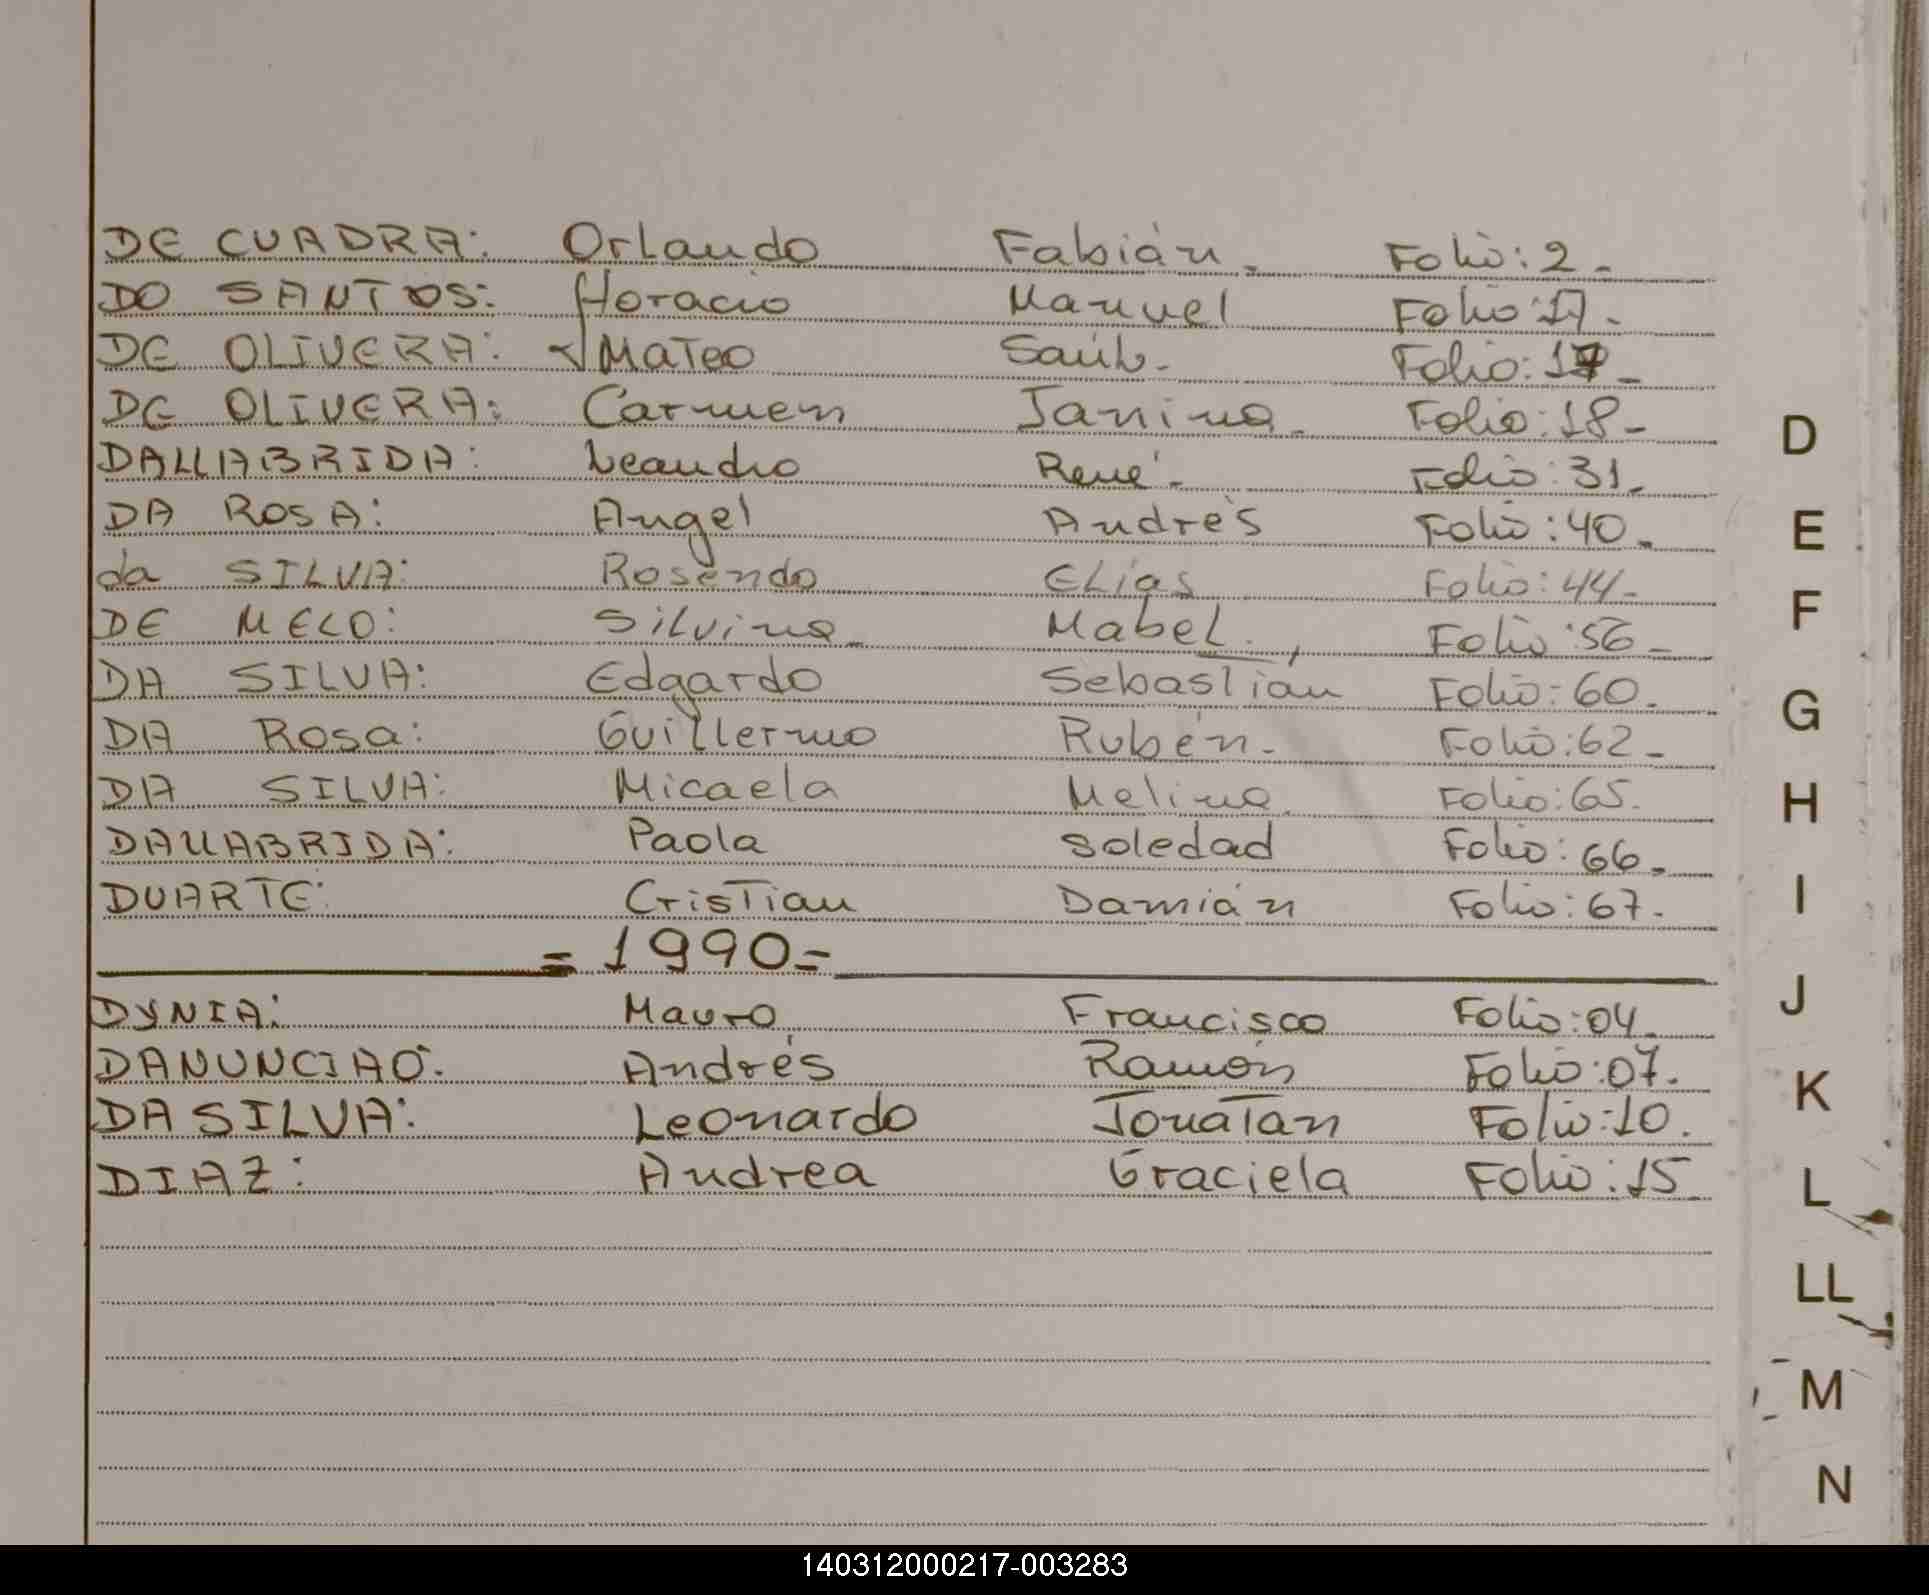 DE CUADRA: Orlando Fabián. Folio: 2.
DO SANTOS: Horacio Manuel Folio: 17.
DE OLIVERA: Mateo Saúl. Folio: 17-
DE OLIVERA: Carmen Janina. Folio: 18-
DALLABRIDA: Leandro René- Folio: 31.
DA ROSA: Angel Andrés Folio: 40.
da SILVA: Rosendo Elías Folio: 44-
DE MELO: Silvina Mabel. Folio: 56-
DA SILVA: Edgardo Sebastián Folio: 60.
DA Rosa: Guillermo Rubén- Folio: 62-
DA SILVA: Micaela Melina. Folio: 65.
DALLABRIDA: Paola Soledad Folio: 66-
DUARTE: Cristian Damián Folio: 67.
= 1990-
DYNIA: Mauro Francisco Folio: 04.
DANUNCIAO: Andrés Ramón Folio: 07.
DA SILVA: Leonardo Jonatan Folio: 10.
DIAZ: Andrea Graciela Folio: 15
D
E
F
G
H
I
J
K
L
LL
M
N
140312000217-003283